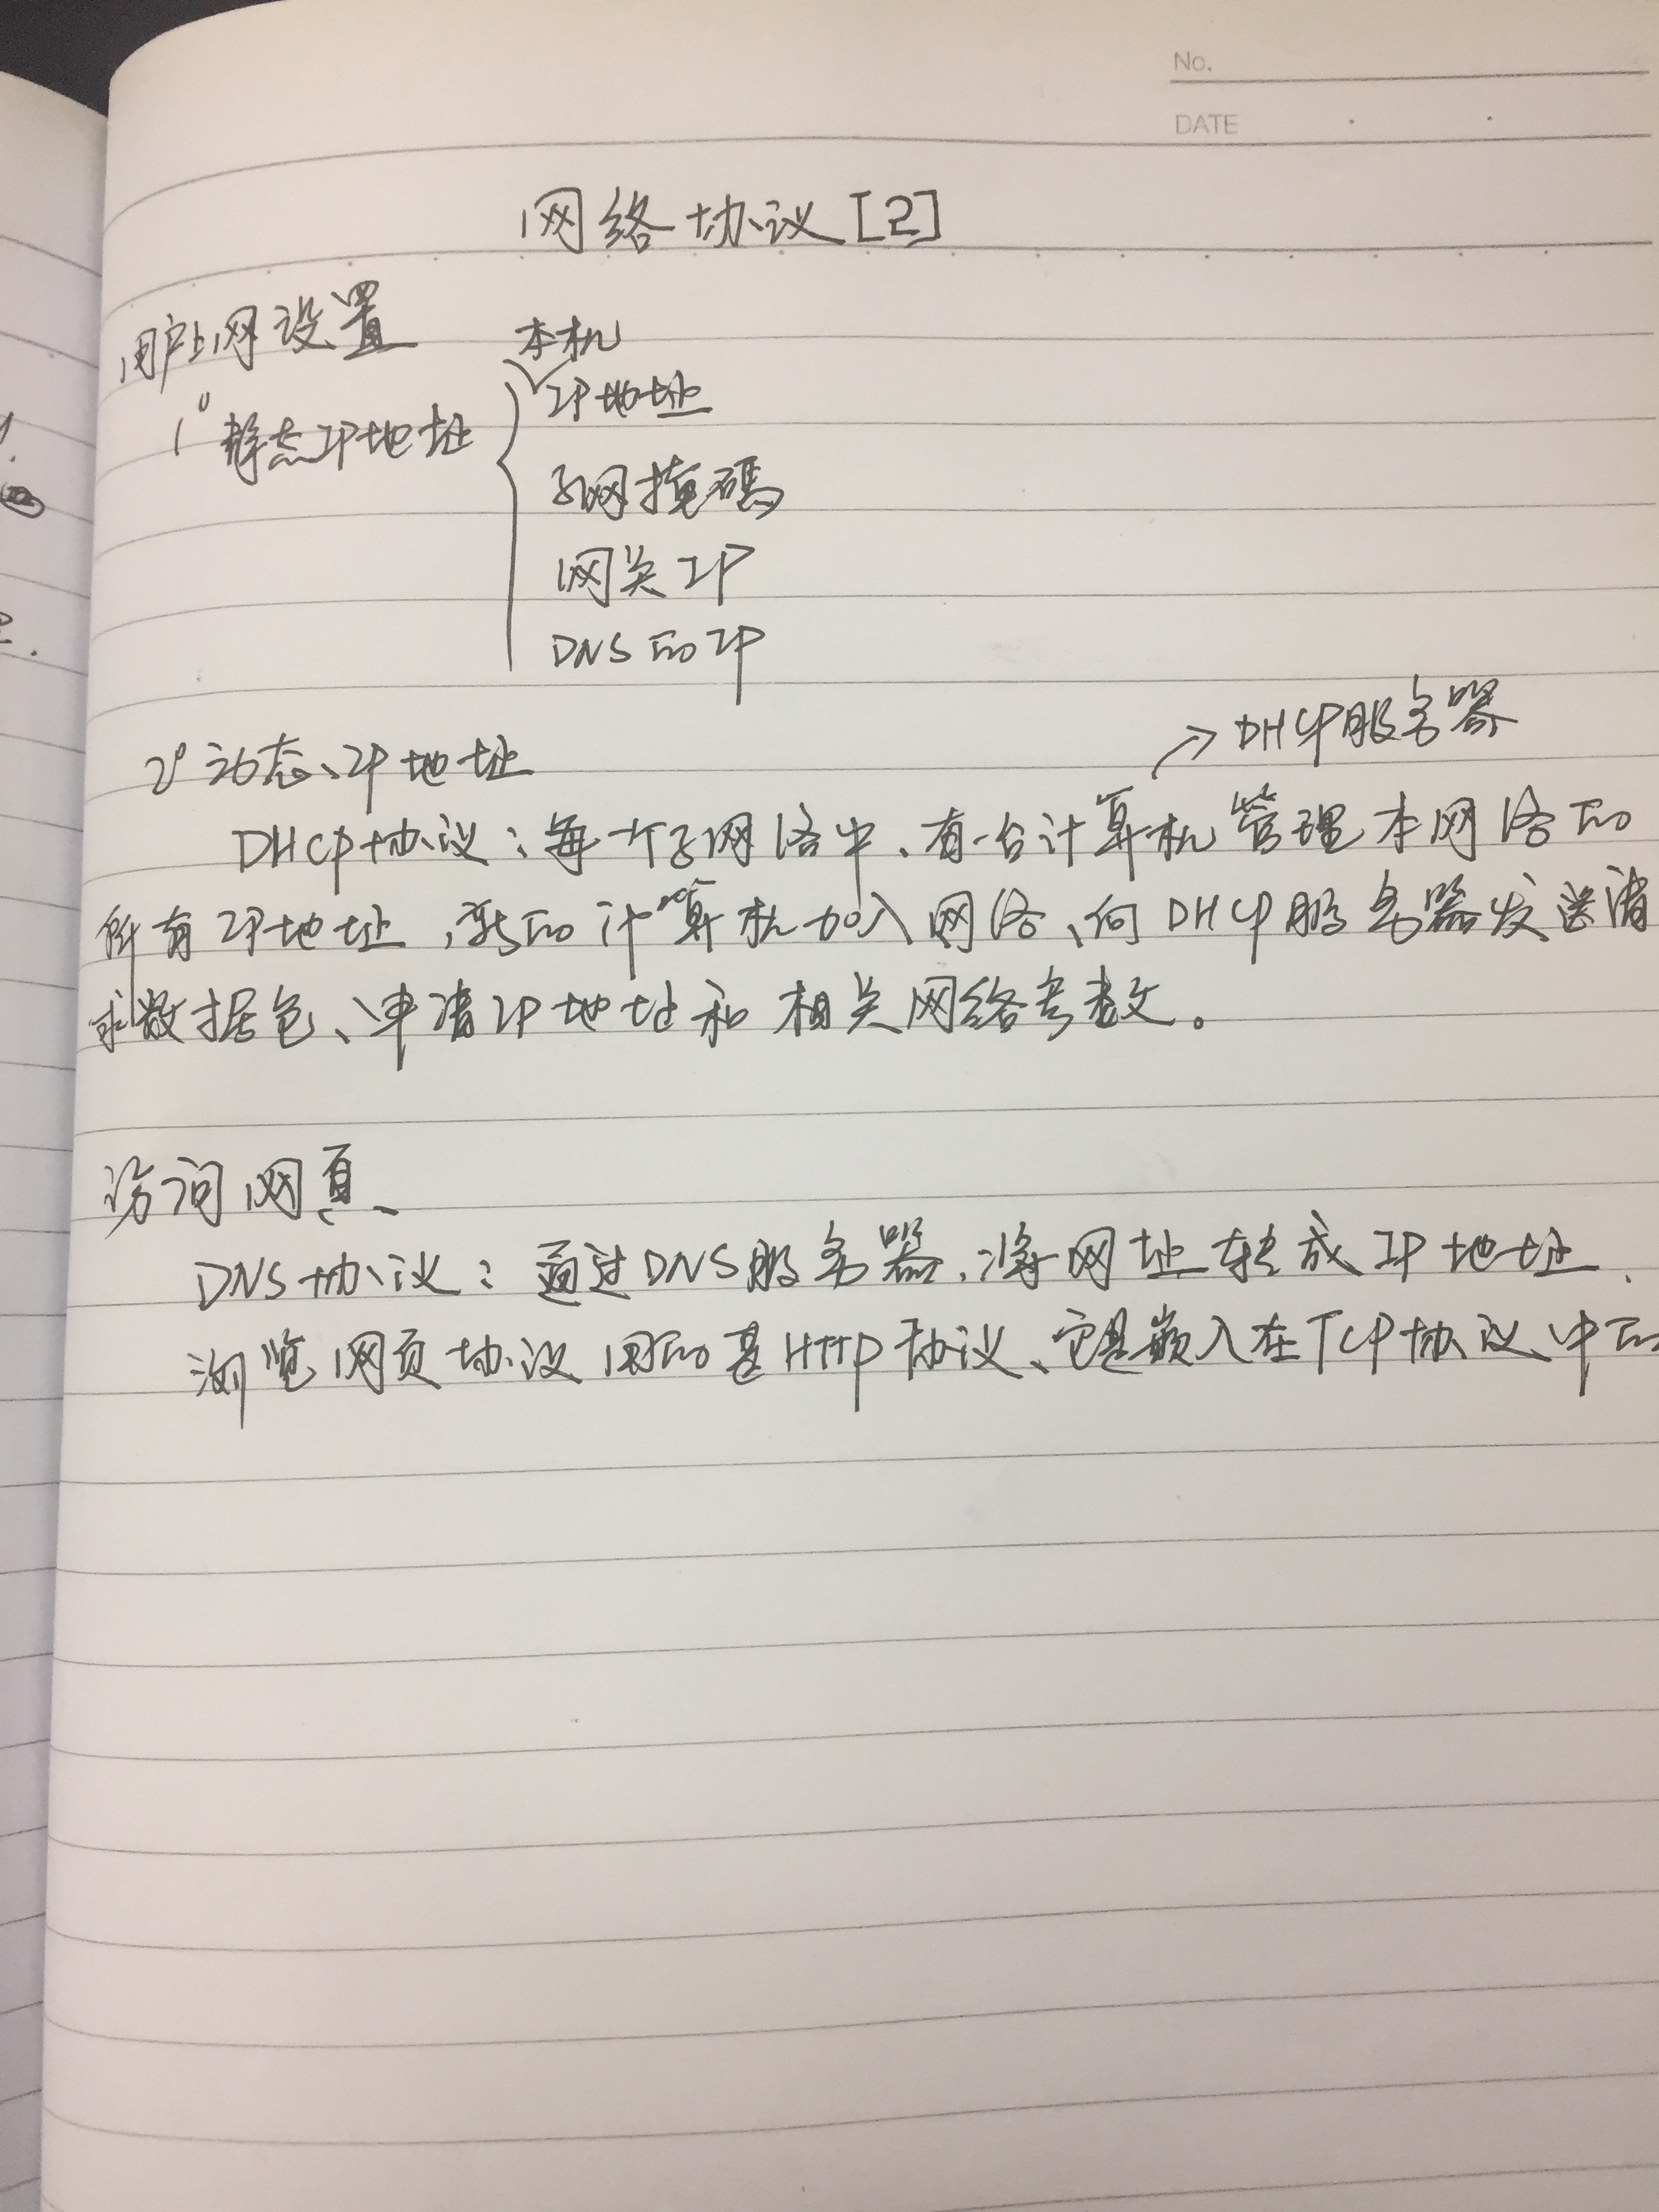 No.
DATE
网络协议[2]
用户上网设置
本机
1° 静态IP地址
IP地址
子网掩碼
网关IP
DNS的IP
2° 动态IP地址
→DHCP服务器
DHCP协议：每一个子网络中、有一台计算机管理本网络的
所有IP地址，新的计算机加入网络、向DHCP服务器发送请
求数据包、申请IP地址和相关网络参数。
访问网页
DNS协议：通过DNS服务器，将网址转成IP地址.
浏览网页协议用的是HTTP协议、它是嵌入在TCP协议中的